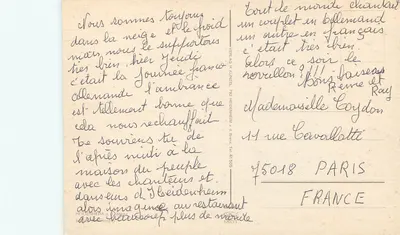 Nous sommes toujours
dans la neige et le froid
mais nous le supportons
très bien. hier Jeudi
c'était la journée franco
allemande l'ambiance
est tellement bonne que
cela nous rechauffait
Te souviens tu de
l'après midi à la
maison du peuple
avec les chanteurs et
danseurs d'Heidenheim
alors imagine au restaurant
avec beaucoup plus de monde
tout le monde chantait
un couplet en allemand
un autre en français
c'était très bien.
Alors ce soir le
reveillon!!!
Bons baisers
Reine et
Ray
Mademoiselle Coydon
11 rue Cavallotti
75018 PARIS
FRANCE